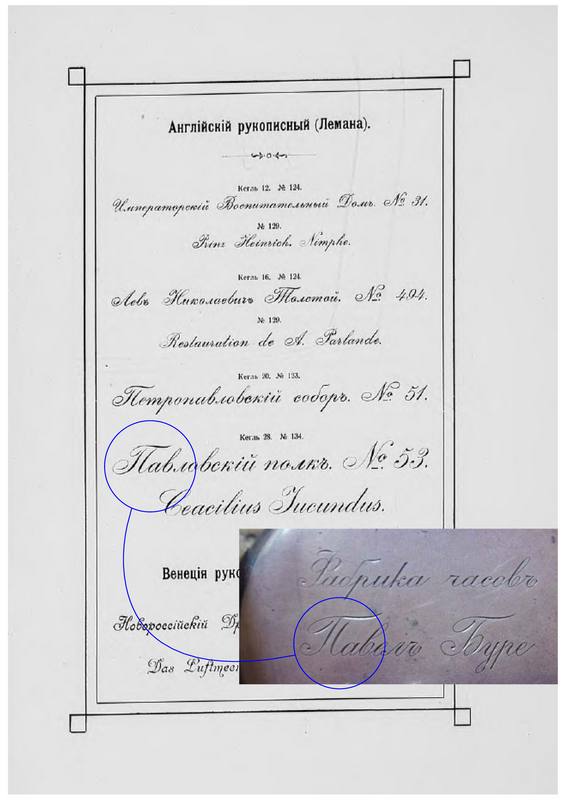 Англійскій рукописный (Лемана).
Кегль 12. № 124.
Императорскій Воспитательный Домъ. № 31.
№ 129.
Prinz Heinrich. Nimphe.
Кегль 16. № 124.
Левъ Николаевичъ Толстой. № 494.
№ 129.
Restauration de A. Parlande.
Кегль 20. № 133.
Петропавловскій соборъ. № 51.
Кегль 28. № 134.
Павловскій полкъ. № 53.
Ceacilius Jucundus.
Венеція руко
Новороссійскій
Das Luftmee
Фабрика часовъ
Павелъ Буре